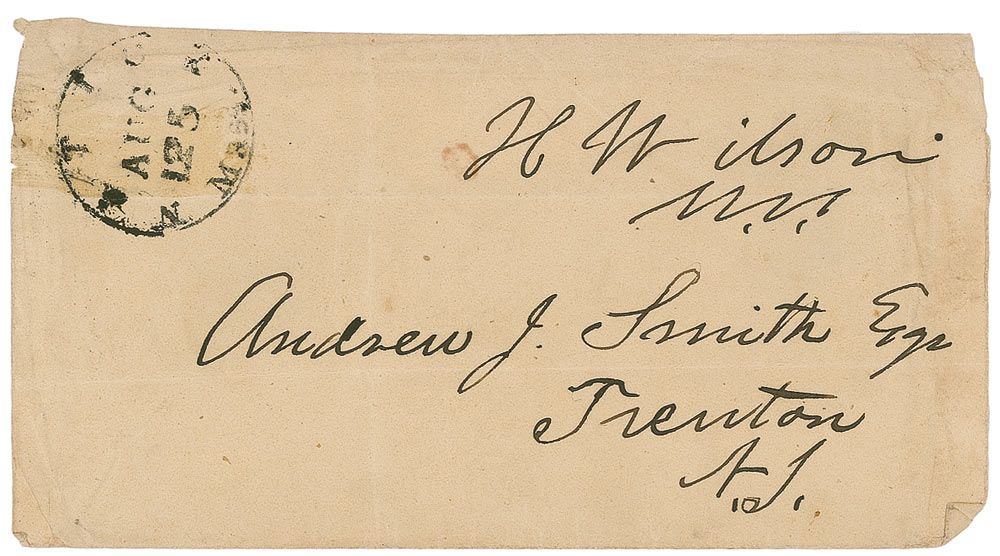 AUG
25
Mass
H Wilson
U.S.S.
Andrew J. Smith Esqr
Trenton
N.J.